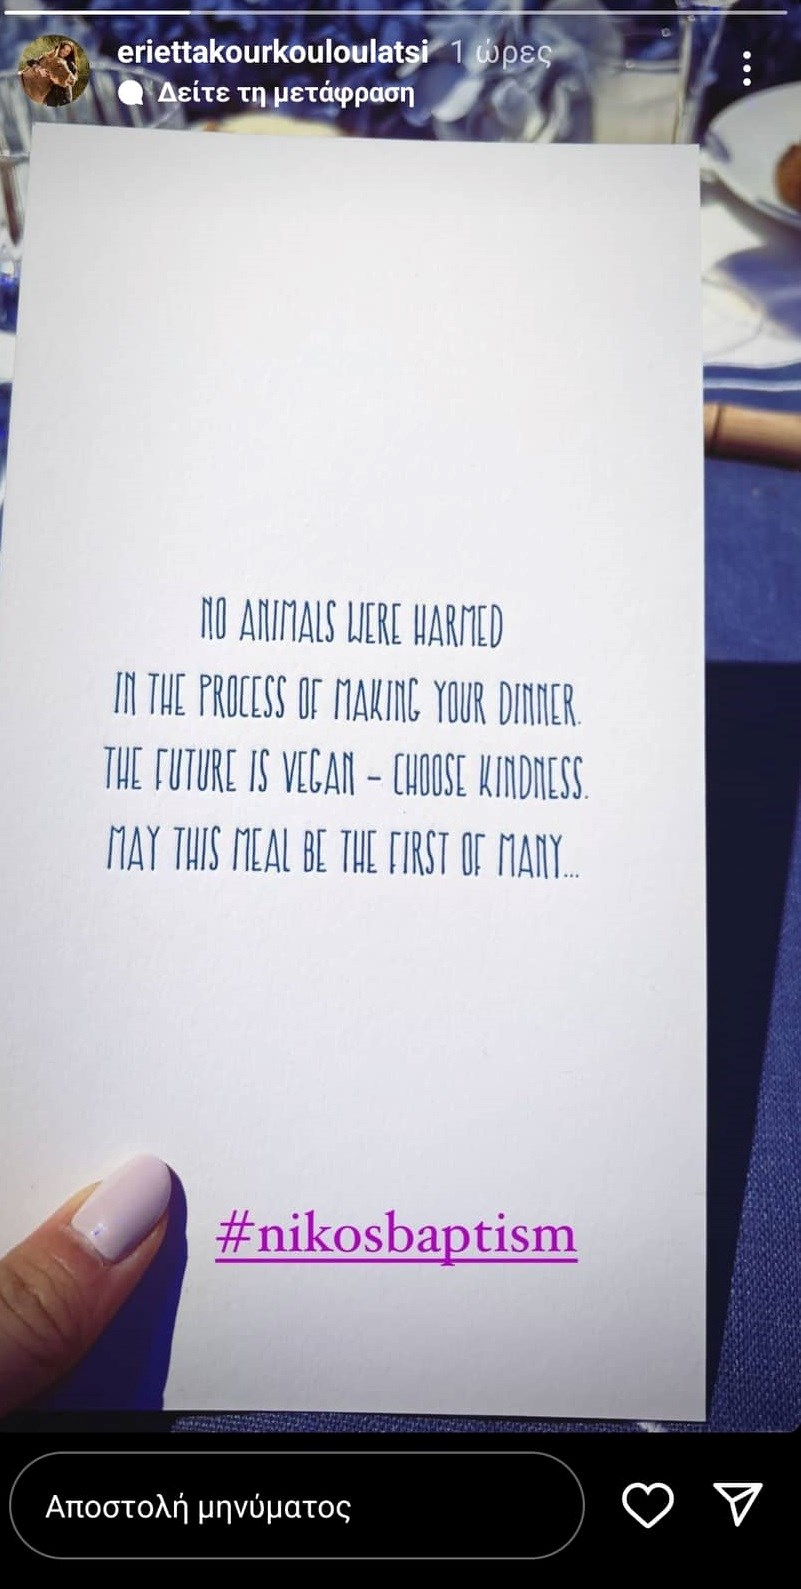 eriettakourkouloulatsi 1 ώρες
Δείτε τη μετάφραση
NO ANIMALS WERE HARMED
IN THE PROCESS OF MAKING YOUR DINNER.
THE FUTURE IS VEGAN – CHOOSE KINDNESS.
MAY THIS MEAL BE THE FIRST OF MANY...
#nikosbaptism
Αποστολή μηνύματος